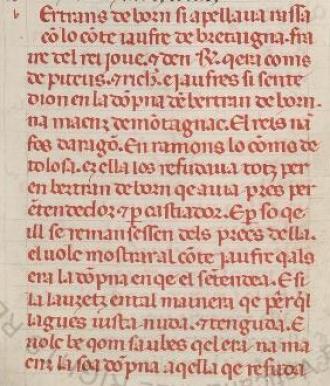 Ertrans de born si apellaua rassa
cō lo cōte iaufre de bretaigna. fra
ire del rei ioue. ⁊ den .R. qera coms
de piteus. ⁊ richz. e iaufres si sente
dion en la dōpna dē bertran de born.
na maenz de mōtagnac. El reis nā
fos daragō. En ramons lo cōms de
tolosa. ez ella los refudaua totz per
en bertran de born qe auia pres per
ētendedor. ⁊ ꝑ castiador. E ꝑ so qe
ill se remansessen dels precs della.
el uole mostrar al cōte iaufre qals
era la dōpna en qe el sētendea. E si
la lauzetz en tal maniera qe ꝑ
lagues uista nuda. ⁊ tenguda. E
uole be qom saubes qel era na ma
enz la soa dōpna aqella qe refuda